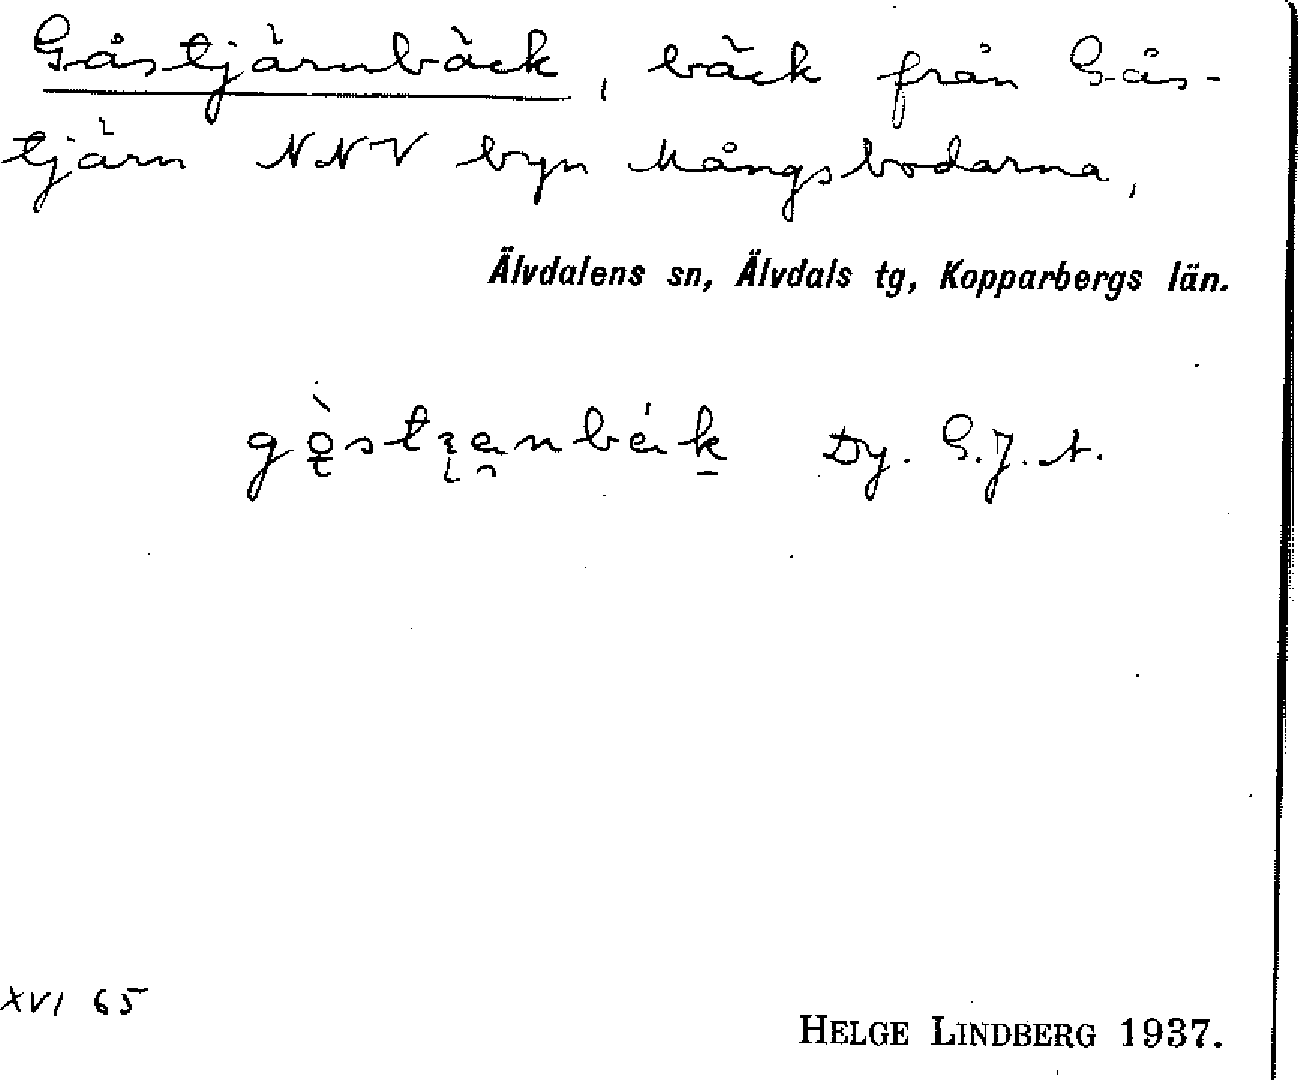 Gåstjärnbäck, bäck från Gås-
tjärn NNV byn Mångsbodarna,
Älvdalens sn, Älvdals tg, Kopparbergs län.
Dy. G.J.A.
XVI 65
HELGE LINDBERG 1937.